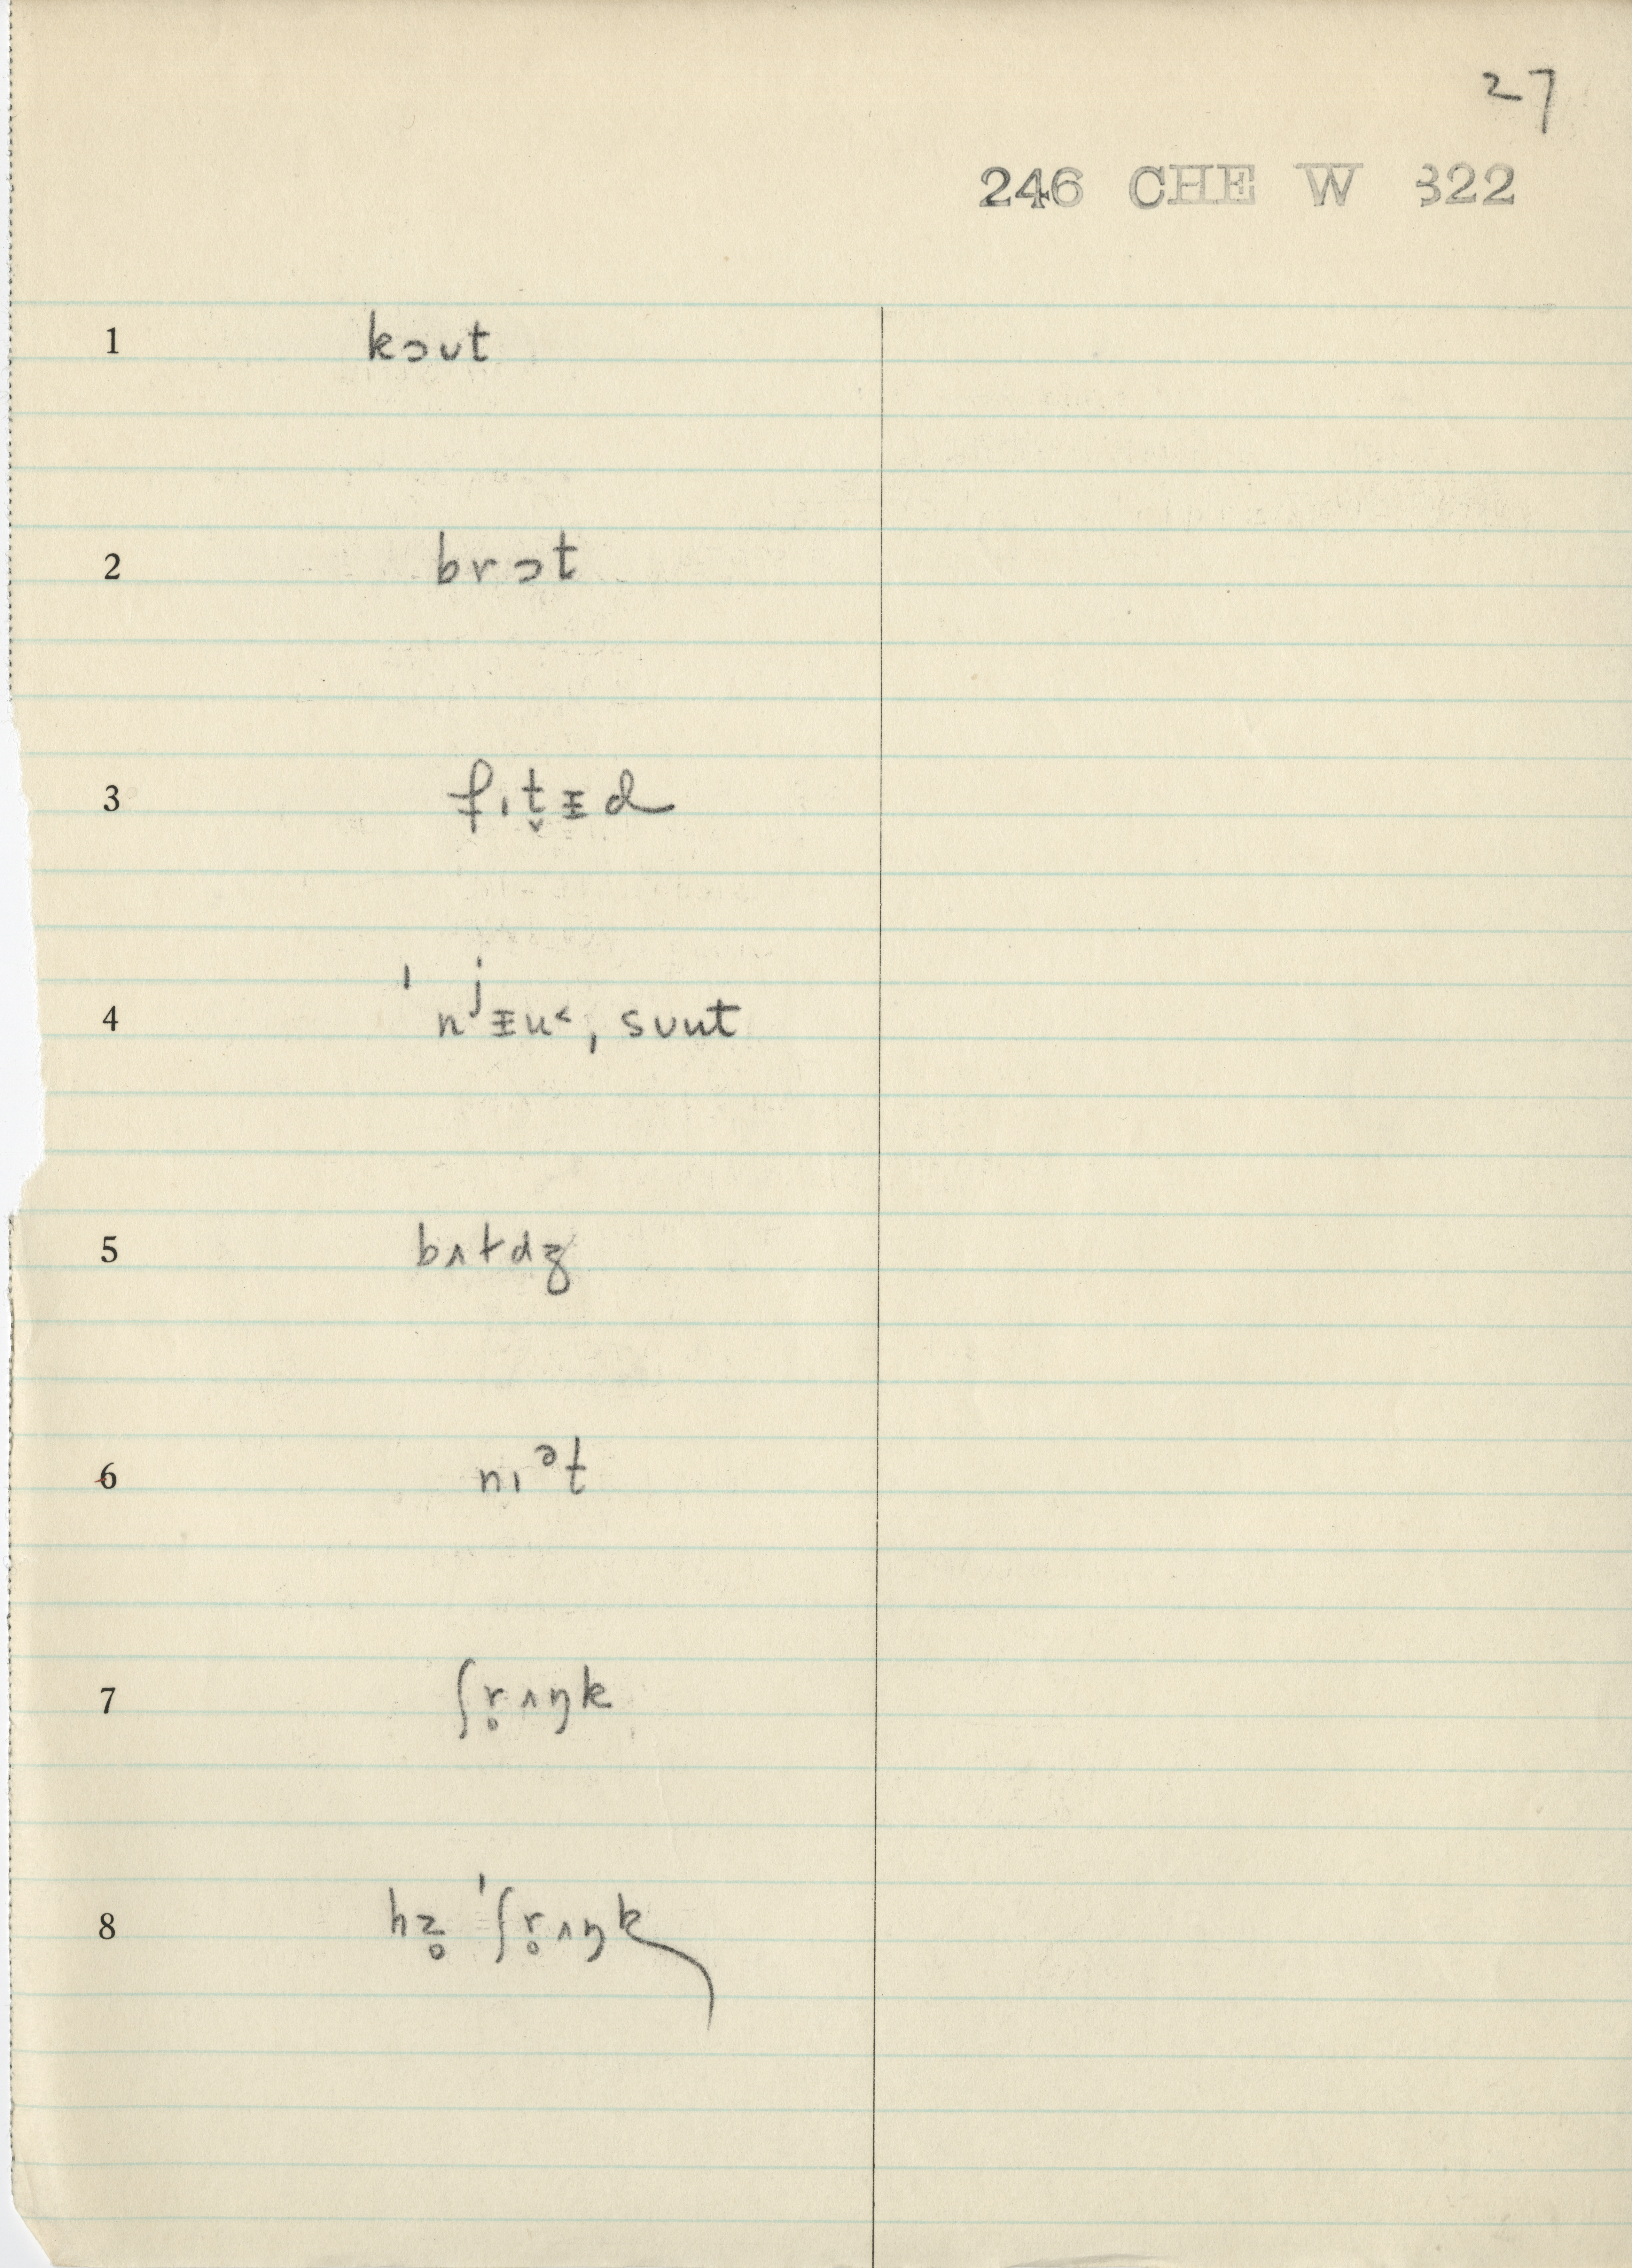 27
246 CHE W 322
1 kɔʊt
2 brɔt
3 fɪt̬ɪ̵d
4 ˈnʲɪ̵u˂, sʊut
5 bʌtdʒ
6 nɪᵊt
7 ʃr̥ʌŋk
8 hz̥ ˈʃr̥ʌŋk